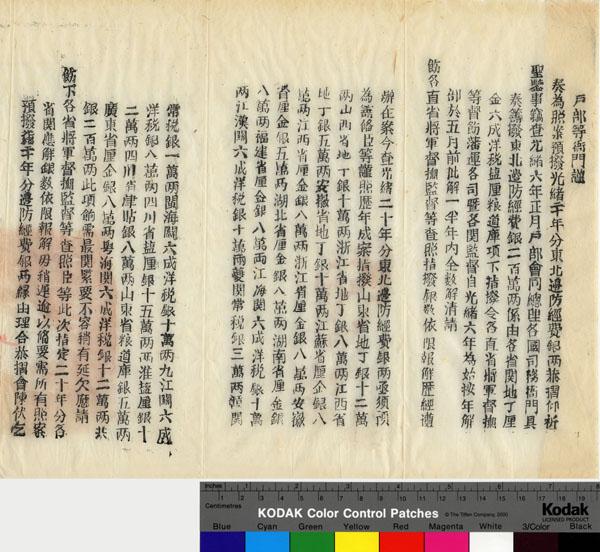 戶部等衙門謹
奏為照案預撥光緒二十年分東北邊防經費銀兩恭摺仰祈
聖鑒事竊查光緒六年正月戶部會同總理各國事務衙門具
奏籌撥東北邊防經費銀二百萬兩係由各省關地丁厘
金六成洋稅鹽厘粮道庫項下指撥令各直省將軍督撫
等督飭藩運各司暨各關監督自光緒六年為始按年解
部於五月前批解一半年內全數解清請
飭各直省將軍督撫監督等查照指撥銀數依限報解歷經遵
辦在案今查光緒二十年分東北邊防經費銀兩亟須預
為籌備臣等謹照歷年成案指撥山東省地丁銀十二萬
兩山西省地丁銀十萬兩浙江省地丁銀八萬兩江西省
地丁銀五萬兩安徽省地丁銀十萬兩江蘇省厘金銀八
萬兩江西省厘金銀八萬兩浙江省厘金銀八萬兩安徽
省厘金銀五萬兩湖北省厘金銀八萬兩湖南省厘金銀
八萬兩福建省厘金銀八萬兩江海關六成洋稅銀十萬
兩江漢關六成洋稅銀十萬兩夔關常稅銀三萬兩贛關
常稅銀一萬兩閩海關六成洋稅銀十萬兩九江關六成
洋稅銀八萬兩四川省鹽厘銀十五萬兩兩淮鹽厘銀十
二萬兩四川省津貼銀八萬兩山東省粮道庫銀五萬兩
廣東省厘金銀八萬兩粵海關六成洋稅銀十二萬兩共
銀二百萬兩此項餉需最關緊要不容稍有延欠應請
飭下各省將軍督撫監督等查照臣等此次指定二十年分各
省關應解銀數依限報解毋稍遲逾以備要需所有照案
預撥二十年分邊防經費銀兩緣由理合恭摺會陳伏乞
Inches
Centimetres
KODAK Color Control Patches
© The Tiffen Company, 2000
Kodak
LICENSED PRODUCT
Blue Cyan Green Yellow Red Magenta White 3/Color Black